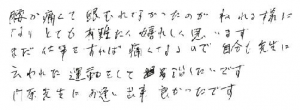 腰が痛くて眠むれなかったのが ねれる様に
なりとても有難たく嬉れしく思います
まだ仕事をすれば痛くなるので自分も先生に
云われた運動をして 治したいです
内原先生にお逢い出来 良かったです